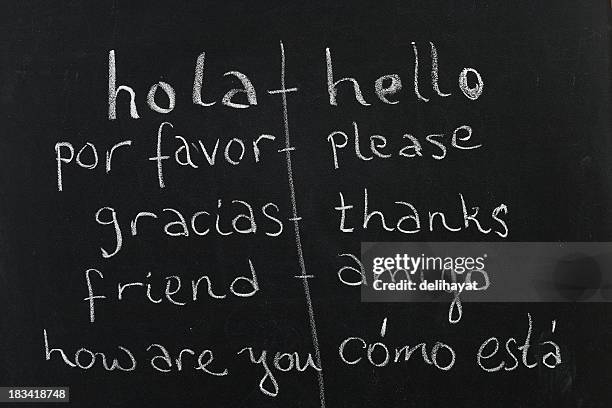 hola - hello
por favor - please
gracias - thanks
friend - amigo
how are you cómo está
gettyimages
delihayat
183418748